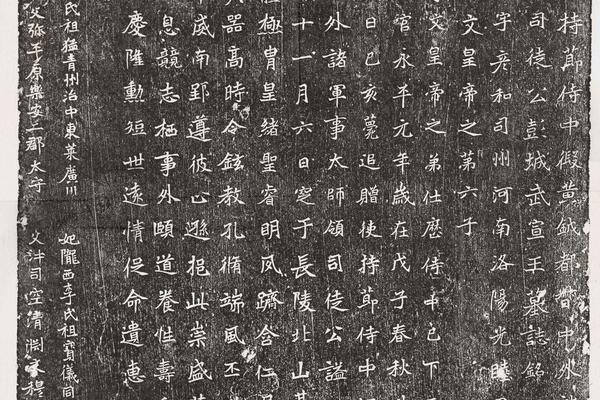 持節侍中假黃鉞都督中外
司徒公彭城武宣王墓誌銘
字彥和司州河南洛陽光睦
文皇帝之第六子
文皇帝之弟仕歷侍中已下
官永平元年歲在戊子春秋
日己亥薨追贈使持節侍中
外諸軍事太師領司徒公諡
十一月六日窆于長陵北山其
極胄皇緒聖睿明夙躋含仁
器高時令鉉教孔脩端風丕
威南郢遵彼止遜挹此崇盛
息競志栖事外頤道養性壽
慶隆勳短世遠情促命遺惠
氏祖猛青州治中東萊廣川 妃隴西李氏祖寶儀同
父弥平原樂安二郡太守 父沖司空清淵穆